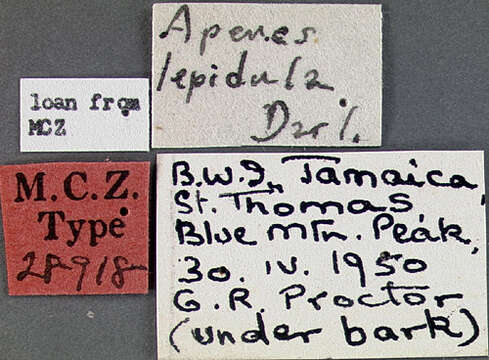 Apenes
lepidula
Darl.
loan from
MCZ
M.C.Z.
Type
28918
B.W.I., Jamaica,
St. Thomas
Blue Mtn. Peak,
30. IV. 1950
G.R. Proctor
(under bark)